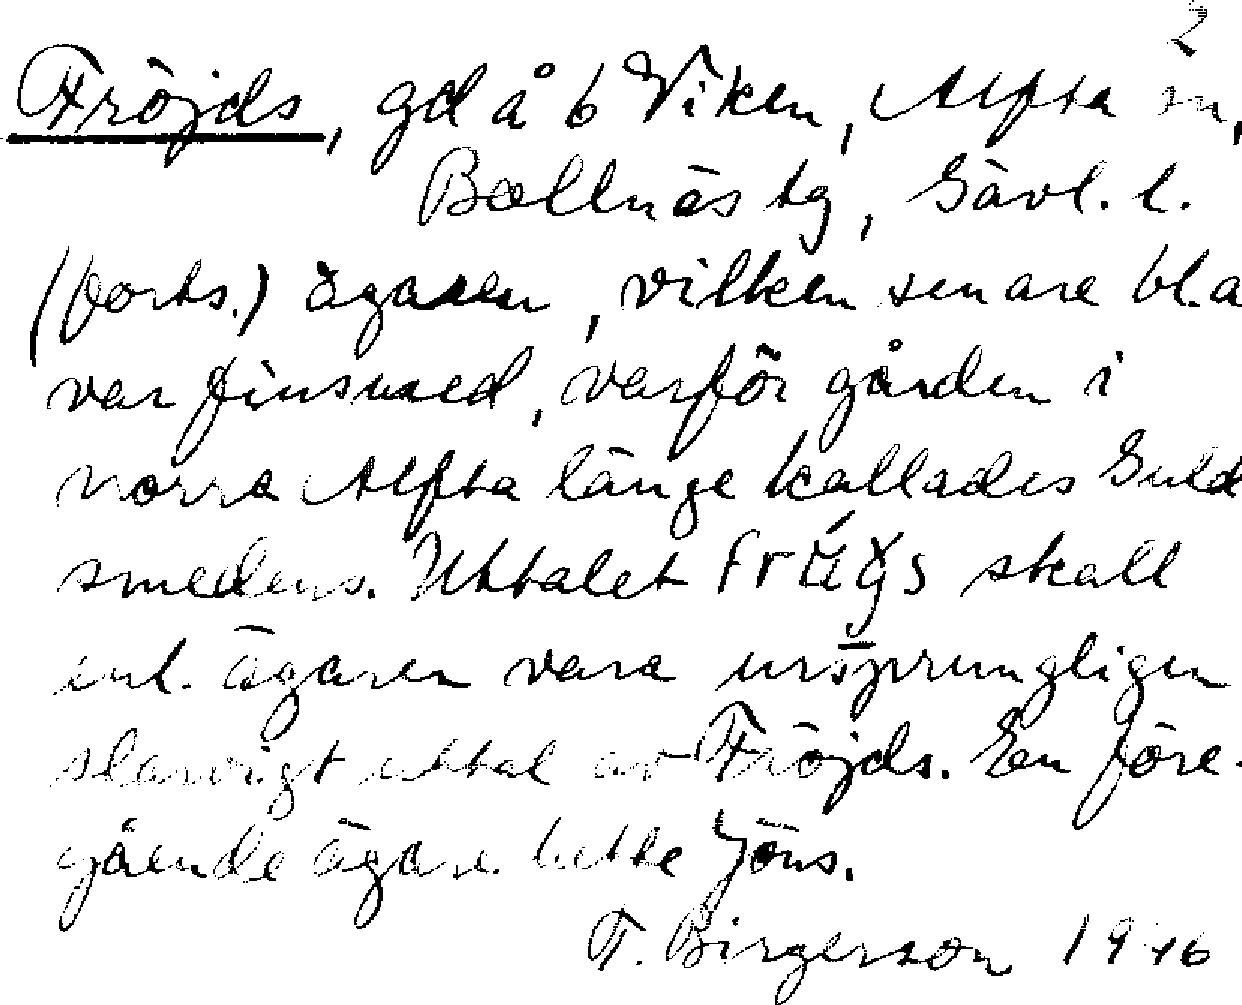 2
Fröjds, gd å b Viken, Alfta sn,
Bollnäs tg, Gävl. l.
(forts.) ägaren, vilken senare bl.a
var finsmed, varför gården i
norra Alfta länge kallades Guld
smedens. Uttalet skall
enl. ägaren vara ursprungligen
slarvigt uttal av Fröjds. En före-
gående ägare hette Jöns.
F. Birgerson 1946